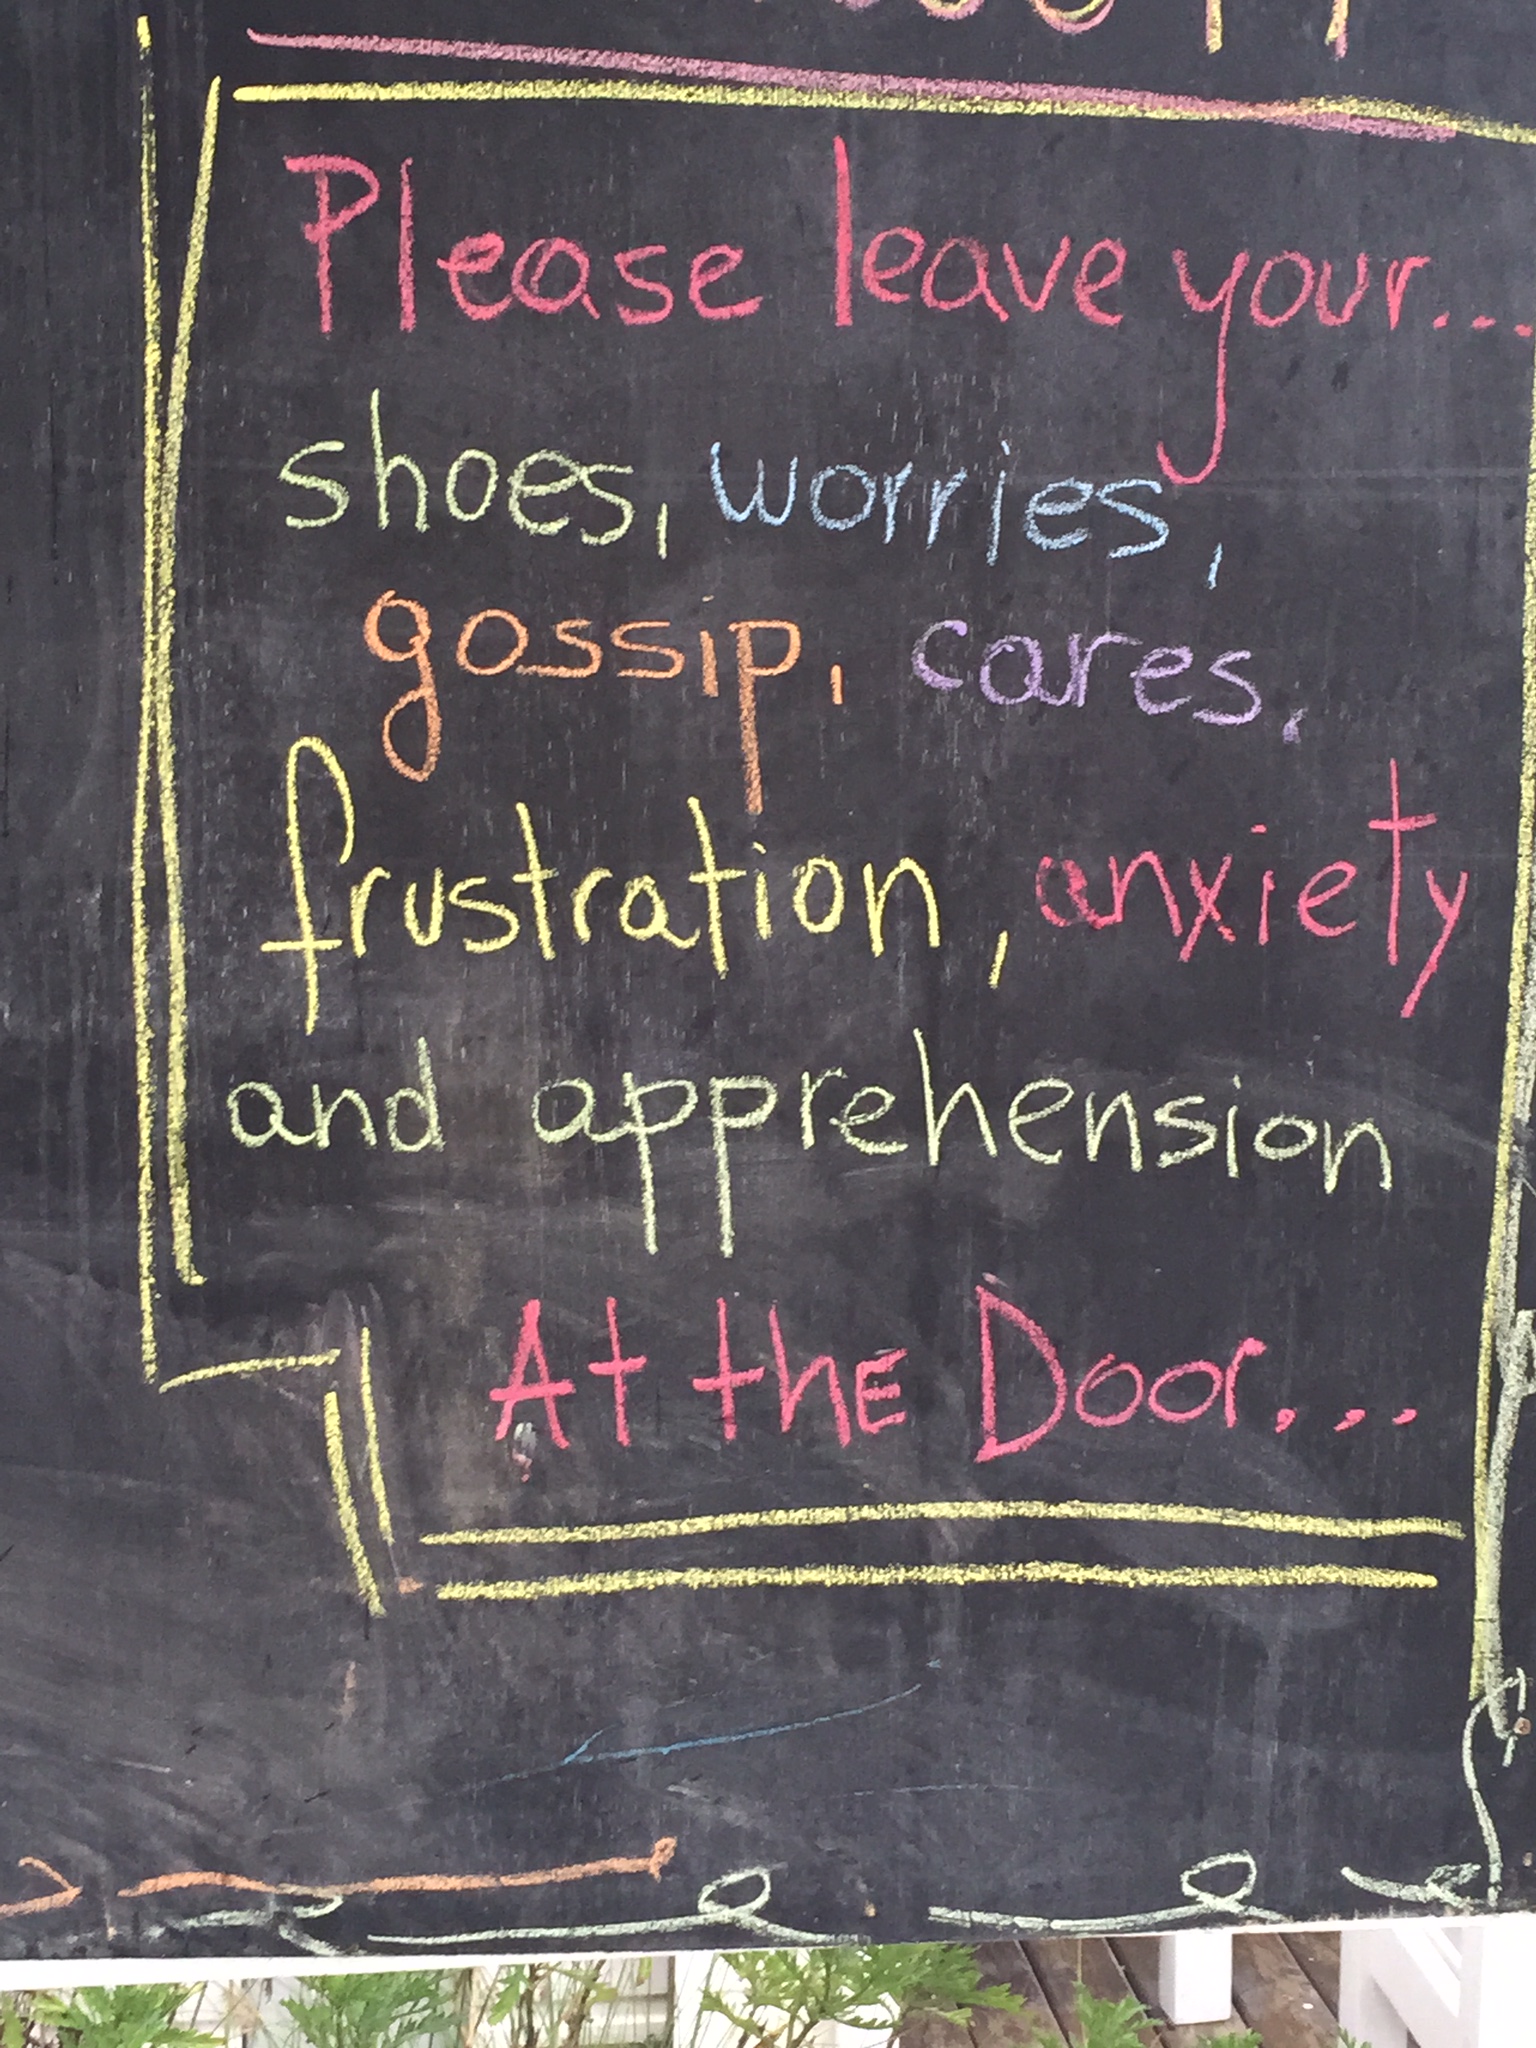 Please leave your...
shoes, worries,
gossip, cares,
frustration, anxiety
and apprehension
At the Door...